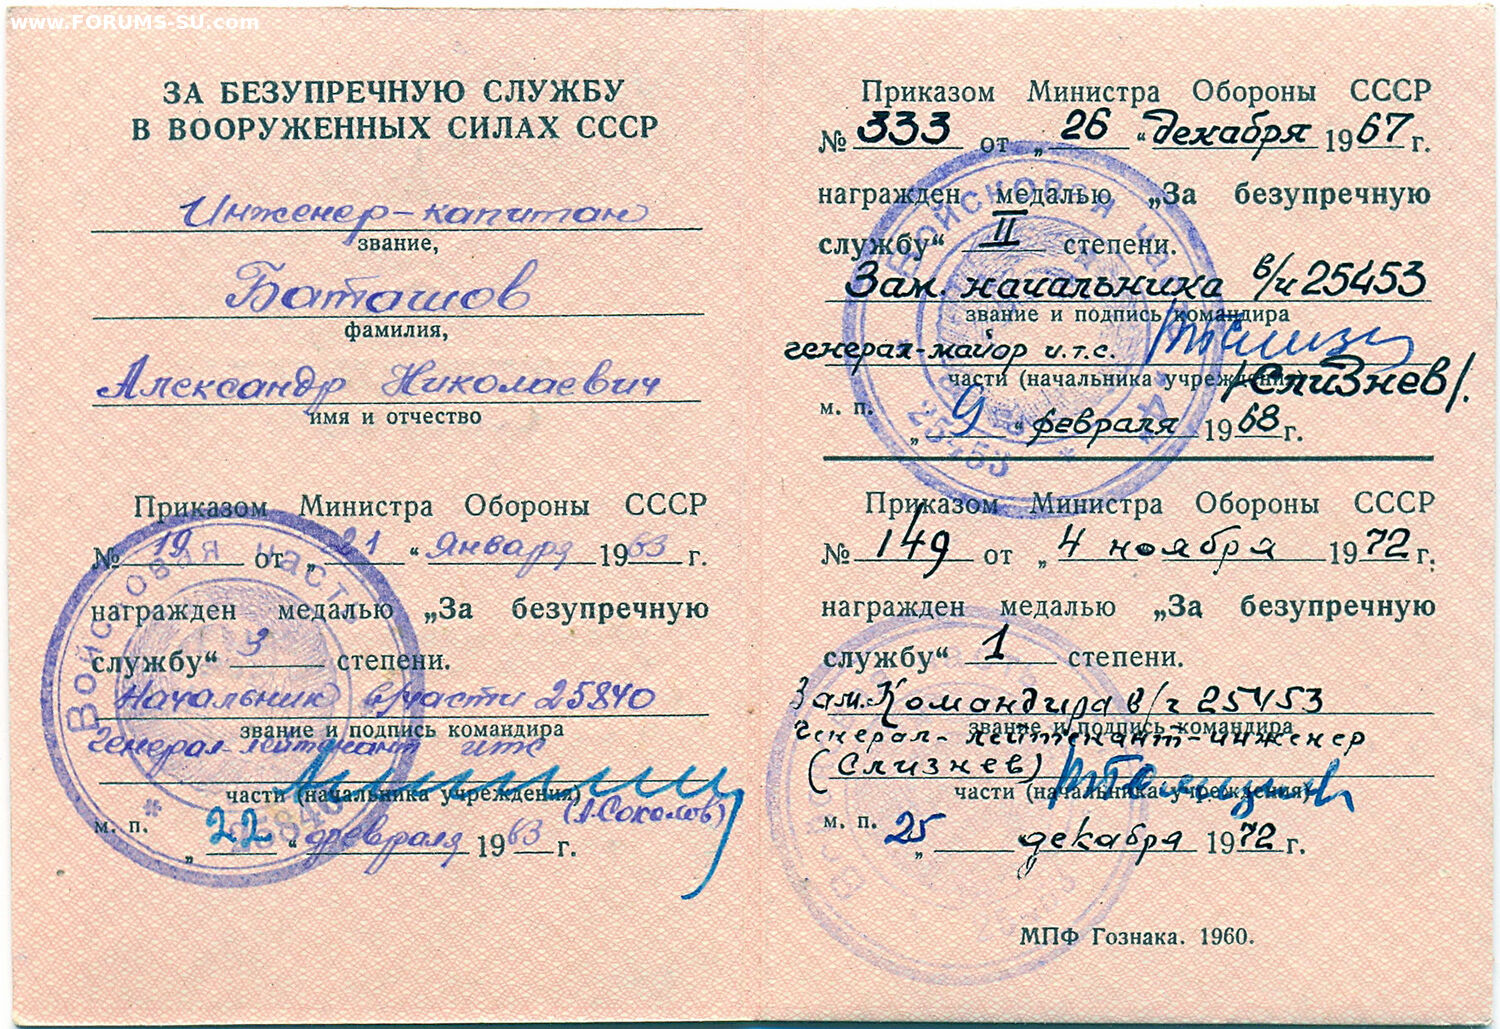 www.FORUMS-SU.com
ЗА БЕЗУПРЕЧНУЮ СЛУЖБУ
В ВООРУЖЕННЫХ СИЛАХ СССР
Инженер-капитан
звание,
Баташов
фамилия,
Александр Николаевич
имя и отчество
Приказом Министра Обороны СССР
№ 19 от „ 21 “ января 1963 г.
награжден медалью „За безупречную
службу“ 3 степени.
Начальник в/части 25840
звание и подпись командира
генерал-лейтенант итс
части (начальника учреждения)
(А.Соколов)
м. п.
„ 22 “ февраля 1963 г.
Войсковая часть
25840
Приказом Министра Обороны СССР
№ 333 от „ 26 “ декабря 1967 г.
награжден медалью „За безупречную
службу“ II степени.
Зам. начальника в/ч 25453
звание и подпись командира
генерал-майор и.т.с.
части (начальника учреждения)
/Слизнев/.
м. п.
„ 9 “ февраля 1968 г.
Войсковая часть
25453
Приказом Министра Обороны СССР
№ 149 от „ 4 ноября 1972 г.
награжден медалью „За безупречную
службу“ 1 степени.
Зам. Командира в/ч 25453
звание и подпись командира
генерал-лейтенант-инженер
(Слизнев)
части (начальника учреждения)
м. п.
25 „ декабря 1972 г.
25453
МПФ Гознака. 1960.